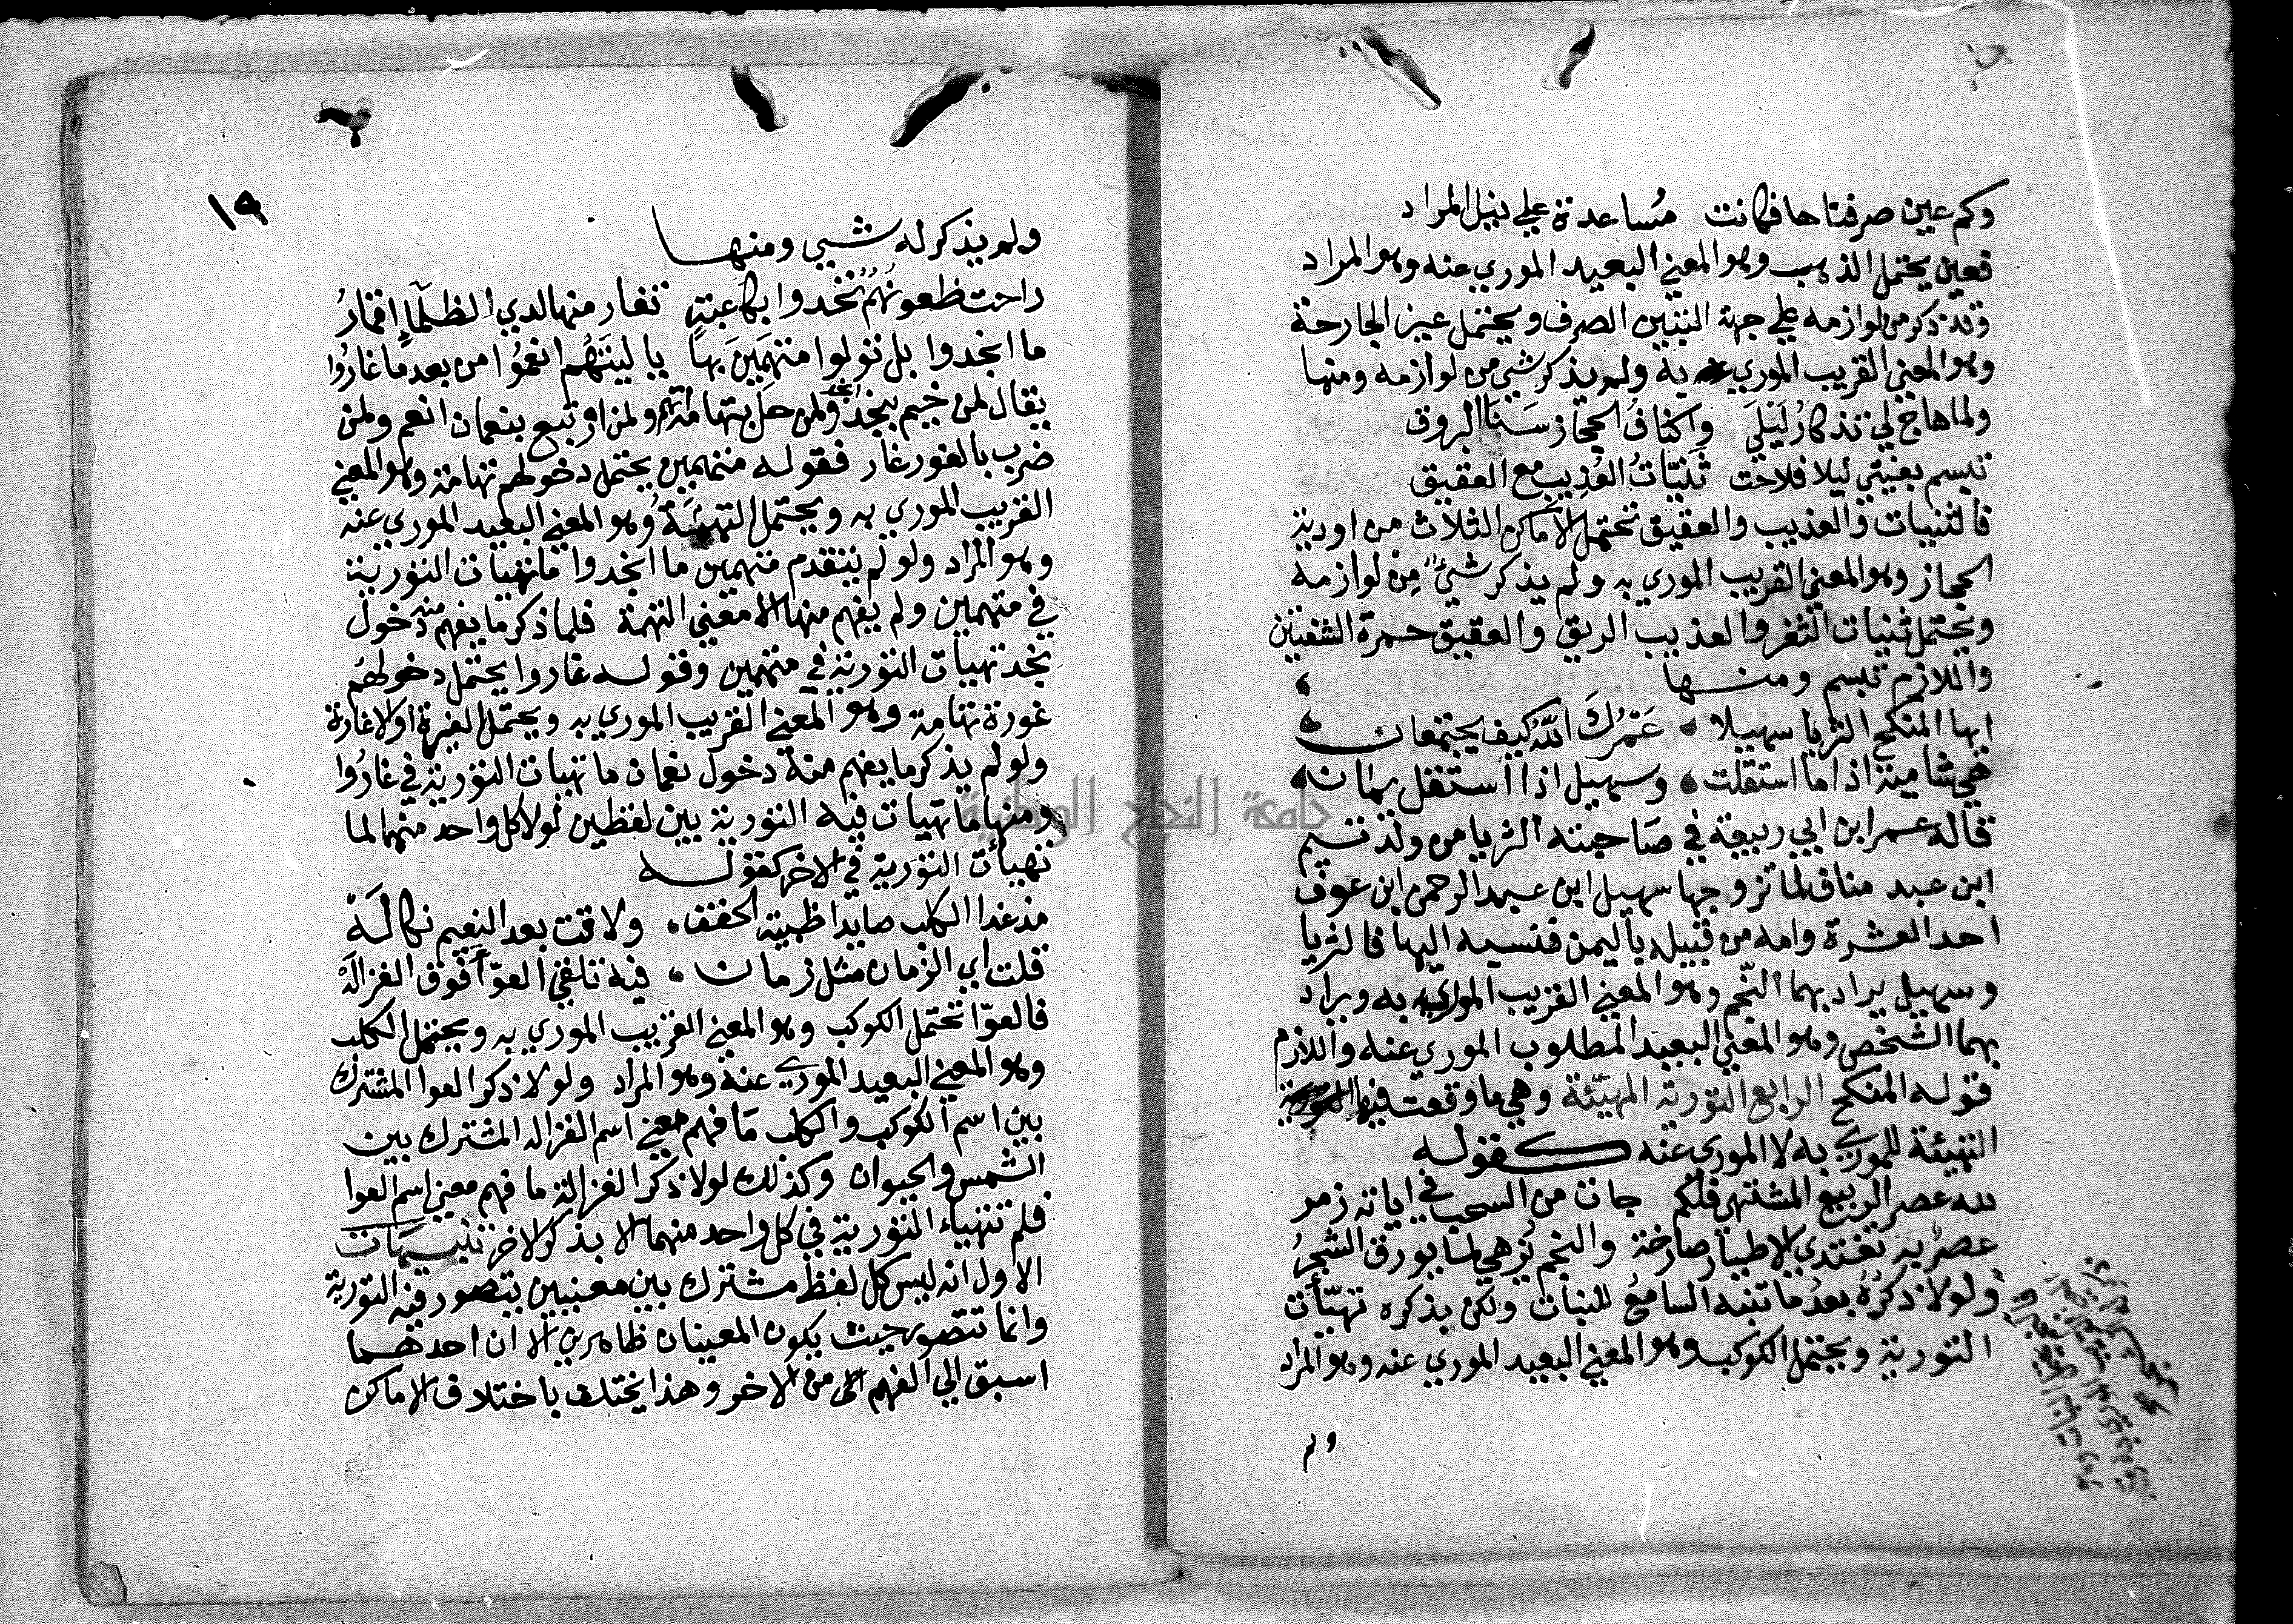 وكم عين صرفناها فكانت مساعدة علي نيل المراد
فعين يحتمل الذهب وهو المعني البعيد الموري عنه وهو المراد
وقد ذكر من لوازمه علي جهة التبيين الصرف ويحتمل عين الجارحة
وهو المعني القريب الموري به ولم يذكر شي من لوازمه ومنها
ولما هاج لي تذكارُ لَيْلَي واكنافُ الحجاز سَنَا البروق
تبسم بغيتي ليلا فلاحت ثَنِيّاتُ العُذيب مع العقيق
فالثنيات والعذيب والعقيق تحتمل الاماكن الثلاث من اودية
الحجاز وهو المعني القريب الموري به ولم يذكر شيٌ من لوازمه
ويحتمل ثنيات الثغر والعذيب الريق والعقيق حمرة الشفتين
واللازم تبسم ومنها
ايها المنكح الثريا سهيلا عَمْرُكَ اللّه كيف يجتمعان
هي شامية اذا ما استقلت وسهيل اذا استقل يمان
قاله عمر ابن ابي ربيعة في صاحبته الثريا من ولد تيم
ابن عبد مناف لما تزوجها سهيل ابن عبد الرحمن ابن عوف
احد العشرة وامه من قبيله باليمن فنسبه اليها فالثريا
وسهيل يراد بهما النّجم وهو المعني القريب الموري به ويراد
بهما الشخص وهو المعني البعيد المطلوب الموري عنه واللازم
قوله المنكح الرابع التورية المهيّئة وهي ما وقعت فيها
التهيئة للموري به لا الموري عنه كقوله
لله عصر الربيع المشتهي فلكم جات من السحب في اياته زمر
عصرٌ به تغتدي الاطيار صارخة والنجم يُزهي لنا بورق الشجرُ
ولولا ذكرُهُ بعدُ ما تنبه السامع للنبات ولكن بذكره تهيّأت
التورية ويحتمل الكوكب وهو المعني البعيد الموري عنه وهو المراد
ولم
١٩
ولم يذكر له شيي ومنها
راحت ظعونُهُمُ نُخْدوا بكاعبة تغار منها لدي الظلماء اقمارُ
ما انجدوا بل تولوا متهمين بها يا ليتَهُم انعمُوا من بعد ما غارُوا
يقال لمن خيم بنجد انجد ولمن حل بتهامة اتهم ولمن اوتبع بنعمان انعم ولمن
ضرب بالغور غار فقوله متهمين يحتمل دخولهم تهامة وهو المعني
القريب الموري به ويحتمل التهمة وهو المعني البعيد الموري عنه
وهو المراد ولو لم يتقدم متهمين ما انجدوا ما تهيات التورية
في متهمين ولم يفهم منها الا معني التهمة فلما ذكر ما يفهم منه دخول
نجد تهيات التورية في متهمين وقوله غاروا يحتمل دخولهم
غورة تهامة وهو المعني القريب الموري به ويحتمل الغيرة او الاغارة
ولو لم يذكر ما يفهم منه دخول نعمان ما تهيات التورية في غارُوا
ومنها ما تهيات فيه التورية بين لفظين لولا كل واحد منهما لما
تهيأت التورية في الاخر كقوله
مذ غدا الكلب صايدا ظبية الحقف ولاقت بعد النعيم نكالَهْ
قلت اي الزمان مثل زمان فيه تلفي العوّا فوق الغزالَهْ
فالعوّا تحتمل الكوكب وهو المعني القريب الموري به ويحتمل الكلب
وهو المعني البعيد الموري عنه وهو المراد ولولا ذكر العوا المشترك
بين اسم الكوكب والكلب ما فهم معني اسم الغزاله المشترك بين
الشمس والحيوان وكذلك لولا ذكر الغزالة ما فهم معني اسم العوا
فلم تتهياء التورية في كل واحد منهما الا بذكر الاخر تنبيهات
الاول انه ليس كل لفظ مشترك بين معنيين يتصور فيه التورية
وانما تتصور حيث يكون المعينان ظاهرين الا ان احدهما
اسبق الي الفهم من الاخر وهذا يختلف باختلاف الاماكن
جامعة النجاح الوطنية